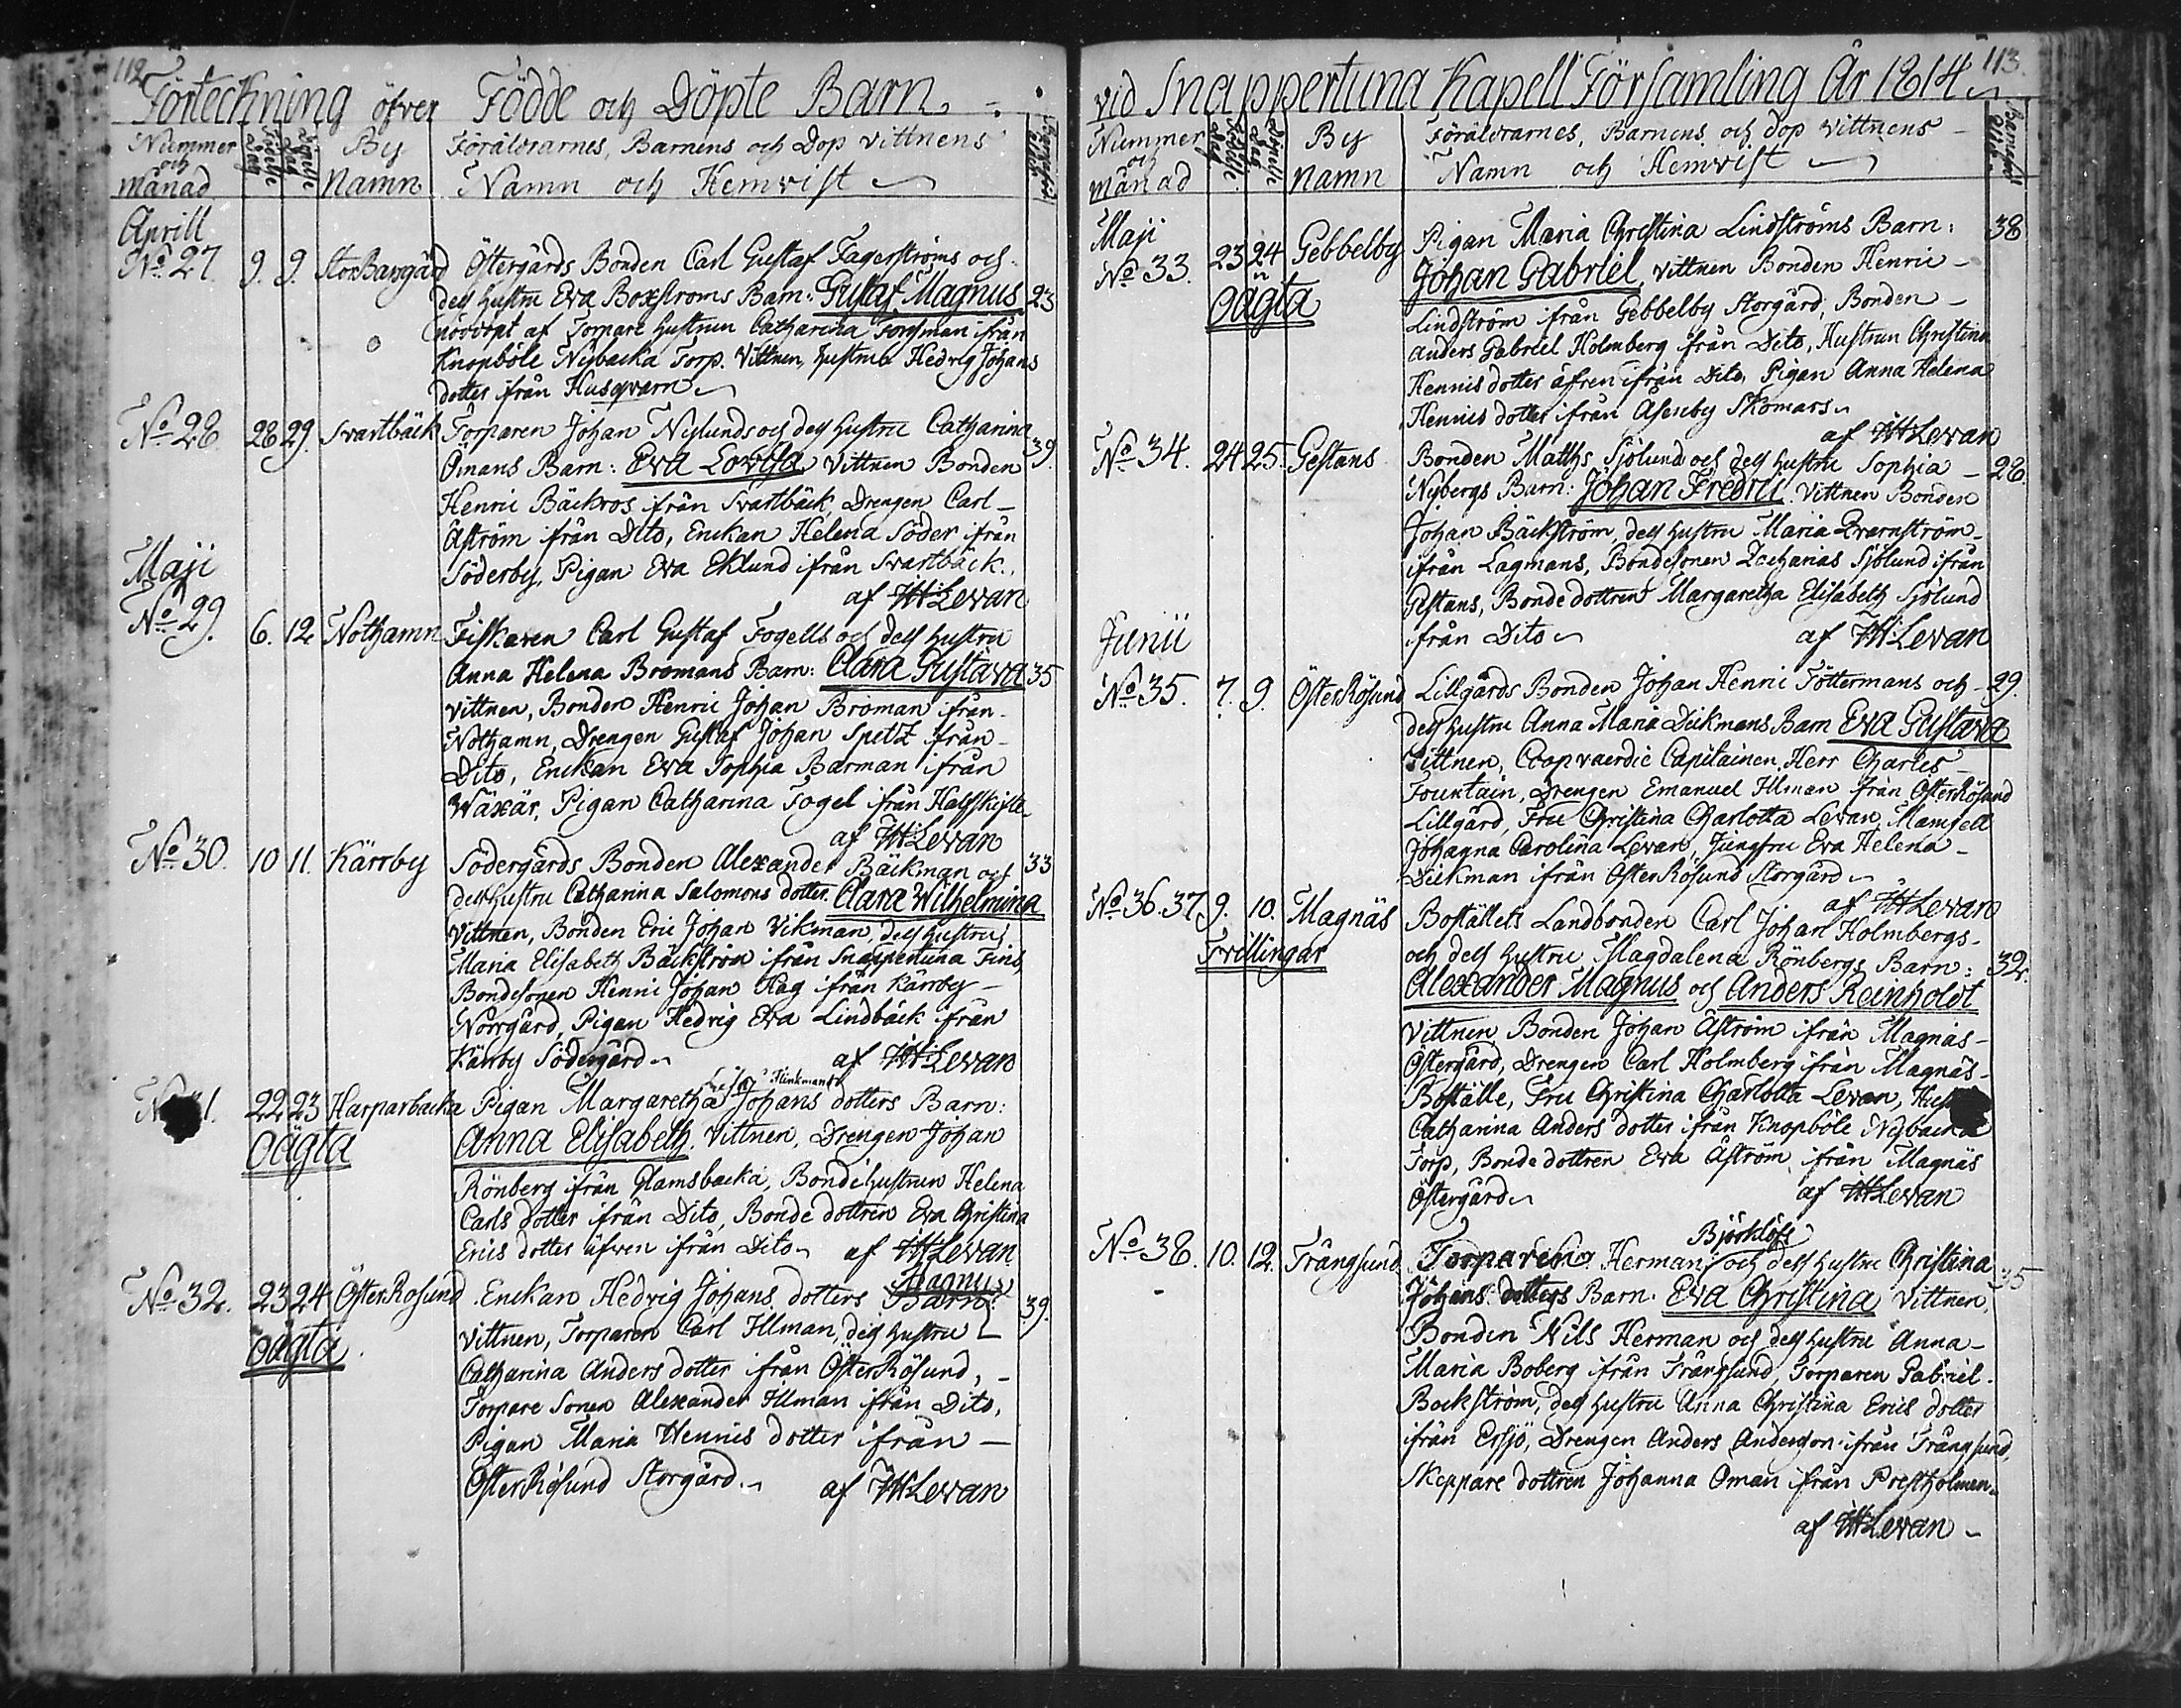 112
Förteckning öfver Födde och Döpte Barn
Nummer och Månad
Födelse dag
Döpelse dag
By Namn
Föräldrarnes, Barnens och Dop vittnens
Namn och Hemvist
Aprill
No 27. 9. 9. Östergårds Bonden Carl Gustaf Fagerströms och
dess hustru Eva Boxströms Barn: Gustaf Magnus 23
nöddöpt af Torpare hustrun Catharina Forsman ifrån
Knopböle Nybacka Torp. Vittnen, hustrun Hedvig Johans
dotter ifrån Husqvarn
No 28. 28 29. Svartbäck Torparen Johan Nylunds och dess hustru Catharina
Ömans Barn: Eva Lovisa, Vittnen Bonden 39.
Henric Bäckros ifrån Svartbäck, Drengen Carl
Åström ifrån Dito, Enckan Helena Söder ifrån
Söderby, Pigan Eva Eklund ifrån Svartbäck.
af JH Levan
Maji
No 29. 6. 12 Nothamn Fiskaren Carl Gustaf Fogells och dess hustru
Anna Helena Bromans Barn: Clara Gustava 35
Vittnen, Bonden Henric Johan Broman ifrån
Nothamn, Drengen Gustaf Johan Spetz ifrån
Dito, Enckan Eva Sophia Barman ifrån
Wäxär, Pigan Catharina Fogel ifrån Halfskifte
af JH Levan
No 30. 10 11. Kärrby Södergårds Bonden Alexander Bäckman och 33
dess hustru Catharina Salomons dotter. Clara Wilhelmina
Vittnen, Bonden Eric Johan Vikman, dess hustru
Maria Elisabeth Bäckström ifrån Snappertuna Fins,
Bondesonen Henric Johan Hag ifrån Kärrby
Norrgård, Pigan Hedvig Eva Lindbäck ifrån
Kärrby Södergård af JH Levan
Flinkmans
22 23 Harparbacka Pigan Margaretha Johans dotters Barn:
Oägta Anna Elisabeth. Vittnen, Drengen Johan
Rönberg ifrån Glamsbacka, Bondehustrun Helena
Carls dotter ifrån Dito, Bonde dottren Eva Christina
Erics dotter äfven ifrån Dito af JH Levan
Magnus
No 32. 23 24 Öster Rösund Enckan Hedvig Johans dotters Barn: 39.
Oägta Vittnen, Torparen Carl Illman, dess hustru
Catharina Anders dotter ifrån Öster Rösund,
Torpare Sonen Alexander Illman ifrån Dito,
Pigan Maria Henrics dotter ifrån
Öster Rösund Storgård. af JH Levan
113.
vid Snappertuna Kapell Församling År 1814
Nummer och Månad
Födelse dag
Döpelse dag
By Namn
Föräldrarnes, Barnens och Dop Vittnens
Namn och Hemvist
Maji
No 33. 23 24 Gebbelby Pigan Maria Christina Lindströms Barn: 38
Oägta Johan Gabriel, Vittnen Bonden Henric
Lindström ifrån Gebbelby Storgård, Bonden
Anders Gabriel Holmberg ifrån Dito, Hustrun Christina
Henrics dotter äfven ifrån Dito, Pigan Anna Helena
Henrics dotter ifrån Åsenby Skomars
af JH Levan
No 34. 24 25. Gestans Bonden Matths Sjölund och dess hustru Sophia 28
Nybergs Barn: Johan Fredric. Vittnen Bonden
Johan Bäckström, dess hustru Maria Qvarnström
ifrån Lagmans, Bondesonen Zacharias Sjölund ifrån
Gestans, Bonde dottren Margaretha Elisabeth Sjölund
ifrån Dito af JH Levan
Junii
No 35. 7. 9. Öster Rösund Lillgårds Bonden Johan Henric Töttermans och 29.
dess hustru Anna Maria Dickmans Barn Eva Gustava
Vittnen, Coopvaerdie Capitainen Herr Charles
Fountain, Drengen Emanuel Illman ifrån Öster Rösund
Lillgård, Fru Christina Charlotta Levan, Mamsell
Johanna Carolina Levan, Jungfru Eva Helena
Dickman ifrån Öster Rösund Storgård
af JH Levan
No 36. 37 9. 10. Magnäs Boställets Landbonden Carl Johan Holmbergs
Tvillingar och dess hustru Magdalena Rönbergs Barn: 32.
Alexander Magnus och Anders Reinholdt
Vittnen, Bonden Johan Åström ifrån Magnäs
Östergård, Drengen Carl Holmberg ifrån Magnäs
Boställe, Fru Christina Charlotta Levan,
Catharina Anders dotter ifrån Knopböle Nybacka
Torp, Bonde dottren Eva Åström ifrån Magnäs
Östergård af JH Levan
Björklöfs
No 38. 10. 12. Trångsund Torparen Herman och dess hustru Christina 35
Johans dotters Barn: Eva Christina Vittnen,
Bonden Nils Herman och dess hustru Anna
Maria Boberg ifrån Trångsund, Torparen Gabriel
Backström, dess hustru Anna Christina Erics dotter
ifrån Ersjö, Drengen Anders Anderson ifrån Trångsund,
Skeppare dottren Johanna Öman ifrån Prestholmen
af JH Levan